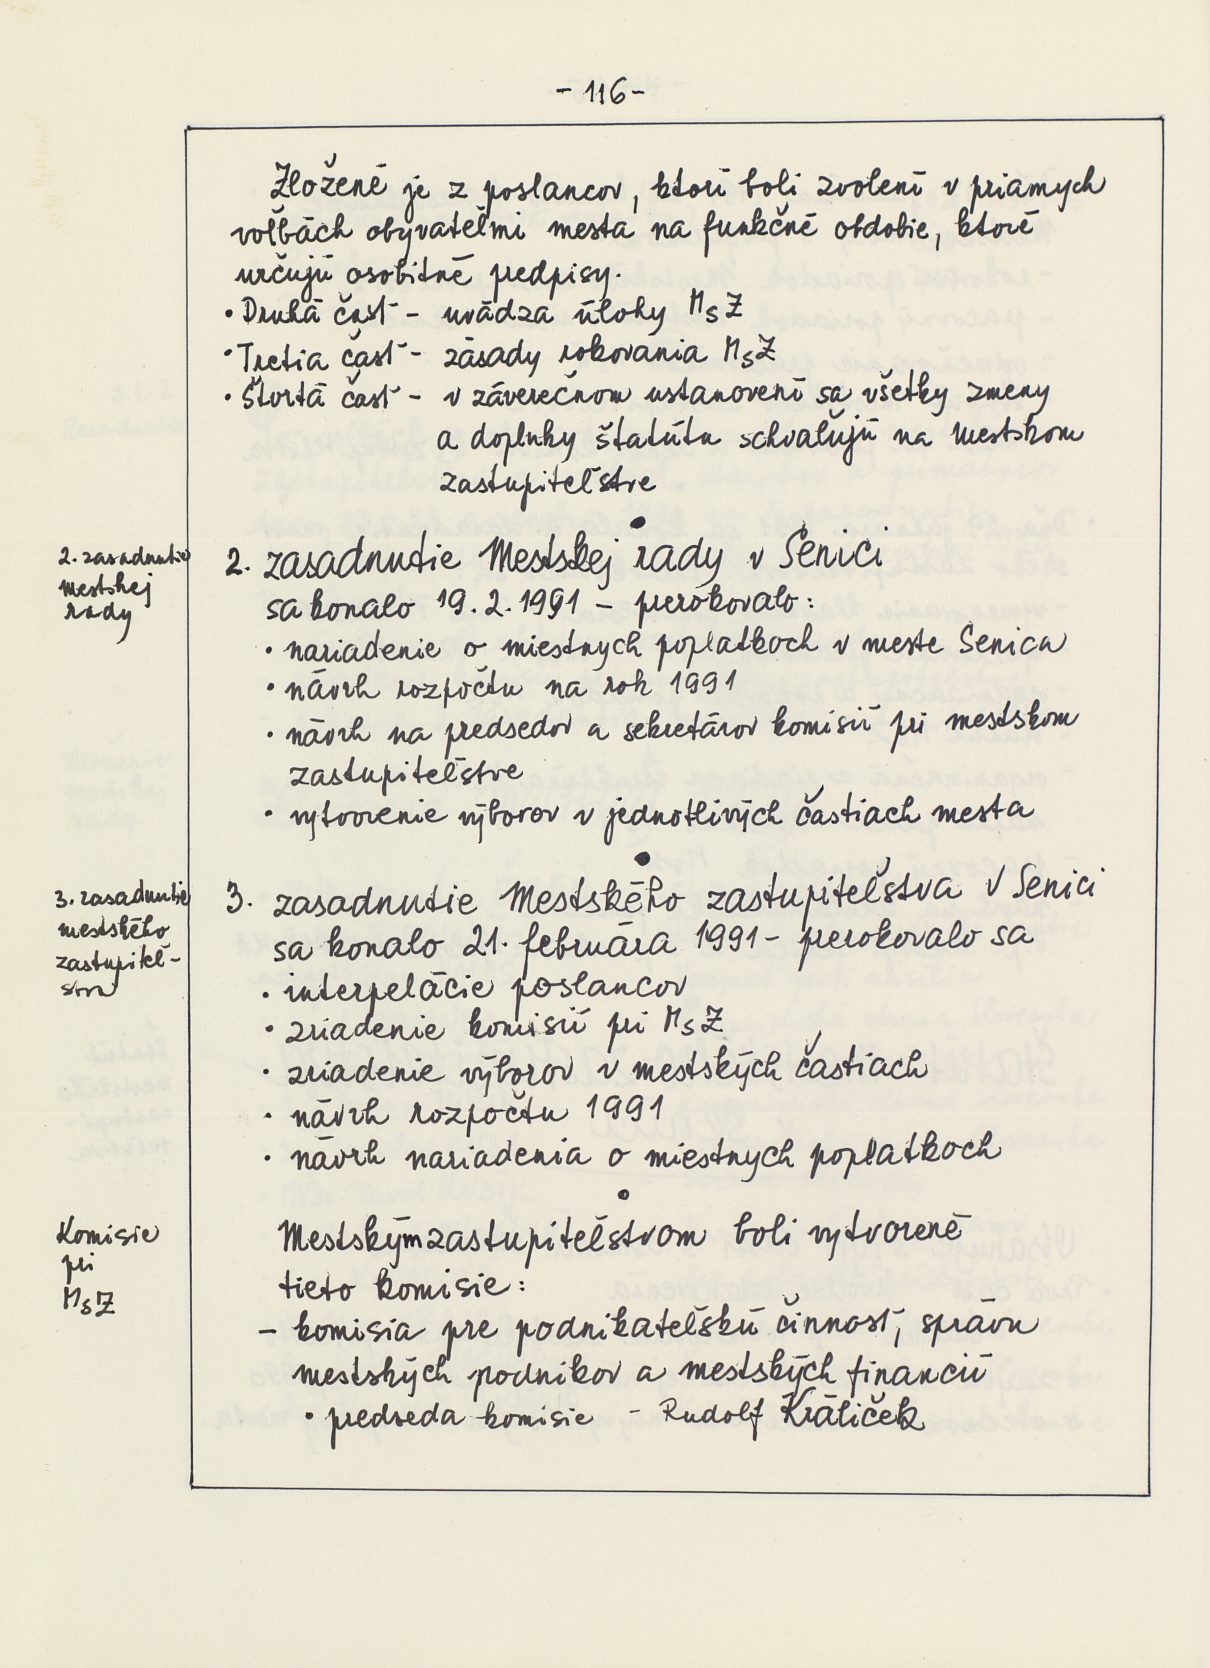 - 116 -
Zložené je z poslancov, ktorí boli zvolení v priamych
voľbách obyvateľmi mesta na funkčné obdobie, ktoré
určujú osobitné predpisy.
• Druhá časť - uvádza úlohy MsZ
• Tretia časť - zásady rokovania MsZ
• Štvrtá časť - v záverečnom ustanovení sa všetky zmeny
a doplnky štatútu schvaľujú na mestskom
zastupiteľstve
2. zasadnutie
mestskej
rady
2. zasadnutie Mestskej rady v Senici
sa konalo 19.2.1991 - prerokovalo:
• nariadenie o miestnych poplatkoch v meste Senica
• návrh rozpočtu na rok 1991
• návrh na predsedov a sekretárov komisií pri mestskom
zastupiteľstve
• vytvorenie výborov v jednotlivých častiach mesta
3. zasadnutie
mestského
zastupiteľ-
stva
3. zasadnutie Mestského zastupiteľstva v Senici
sa konalo 21. februára 1991 - prerokovalo sa
• interpelácie poslancov
• zriadenie komisií pri MsZ
• zriadenie výborov v mestských častiach
• návrh rozpočtu 1991
• návrh nariadenia o miestnych poplatkoch
Komisie
pri
MsZ
Mestským zastupiteľstvom boli vytvorené
tieto komisie:
- komisia pre podnikateľskú činnosť, správu
mestských podnikov a mestských financií
• predseda komisie - Rudolf Králiček